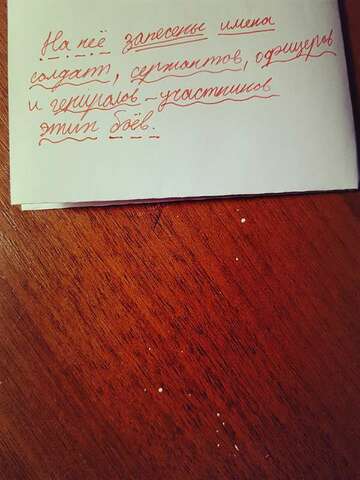 На неё занесены имена
солдат, сержантов, офицеров
и генералов - участников
этих боёв.